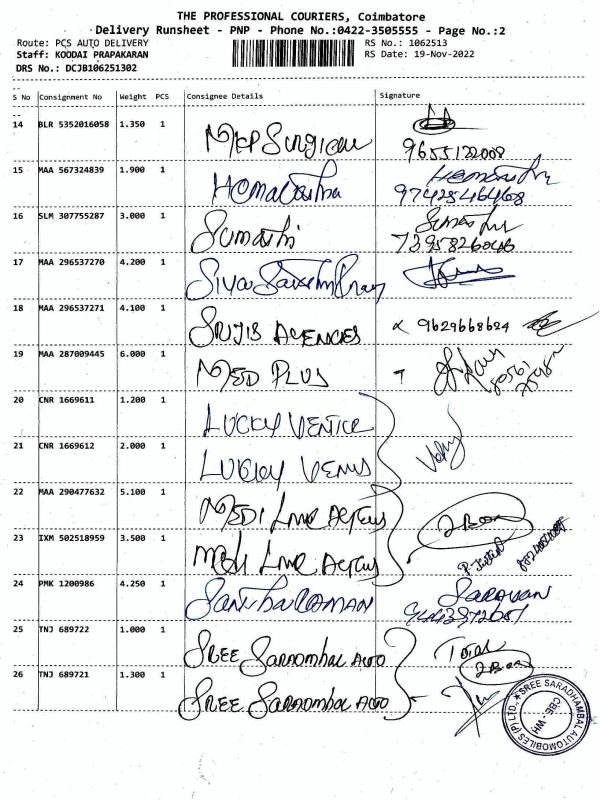 THE PROFESSIONAL COURIERS, Coimbatore
Delivery Runsheet - PNP - Phone No.:0422-3505555 - Page No.:2
Route: PCS AUTO DELIVERY RS No.: 1062513
Staff: KOODAI PRAPAKARAN RS Date: 19-Nov-2022
DRS No.: DCJB106251302
S No Consignment No Weight PCS Consignee Details Signature
14 BLR 5352016058 1.350 1 MKP Surgical
9655122008
15 MAA 567324839 1.900 1 Hemalatha
16 SLM 307755287 3.000 1 Sumathi
17 MAA 296537270 4.200 1 Siva
18 MAA 296537271 4.100 1 SRIJIS AGENCIES 9629668624
19 MAA 287009445 6.000 1 MED PLUS
20 CNR 1669611 1.200 1 LUCKY
21 CNR 1669612 2.000 1 LUCKY VENUS
22 MAA 290477632 5.100 1 MEDI Line
2 Box
23 IXM 502518959 3.500 1 Line
24 PMK 1200986 4.250 1 SARAVAN
25 TNJ 689722 1.000 1 SREE Auto Total
2 Box
26 TNJ 689721 1.300 1 SREE Auto
SREE SARADHAMBAL AUTOMOBILES (P) LTD.
CBE-WH